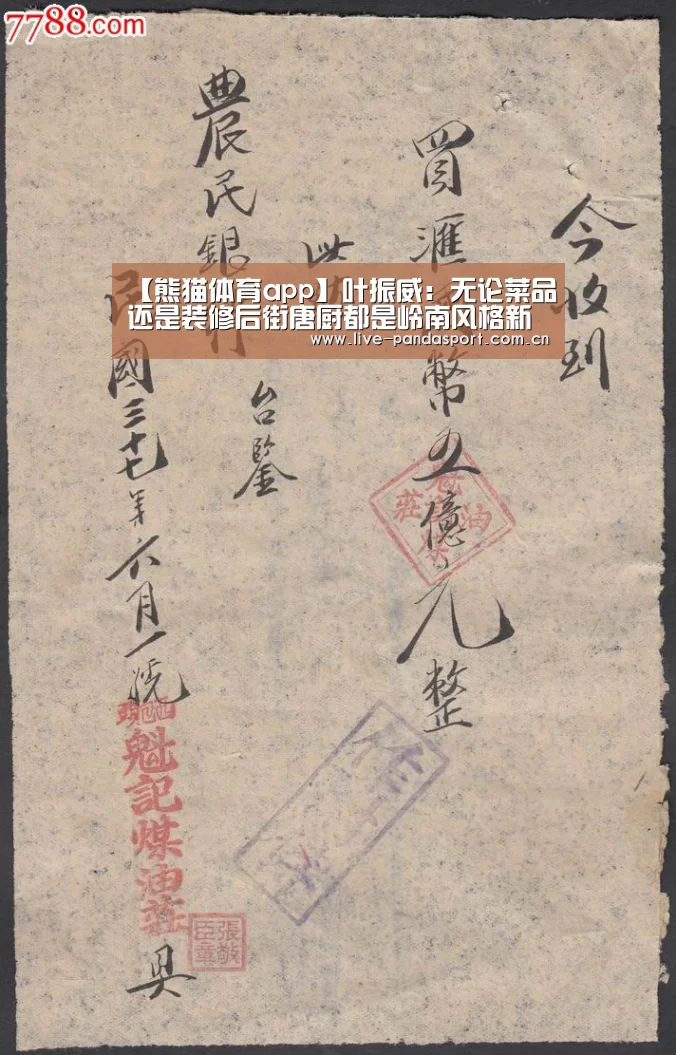 7788.com
今收到
買滙
幣五億元整
農民銀行
台鑒
民國三十七年六月一號
魁記煤油莊
具
張敬臣章
油莊
【熊猫体育app】叶振威：无论菜品
还是装修后街唐厨都是岭南风格新
www.live-pandasport.com.cn